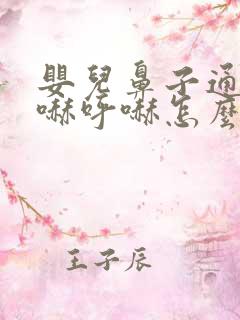 嬰兒鼻子通
嚇呼嚇怎麼
王子辰